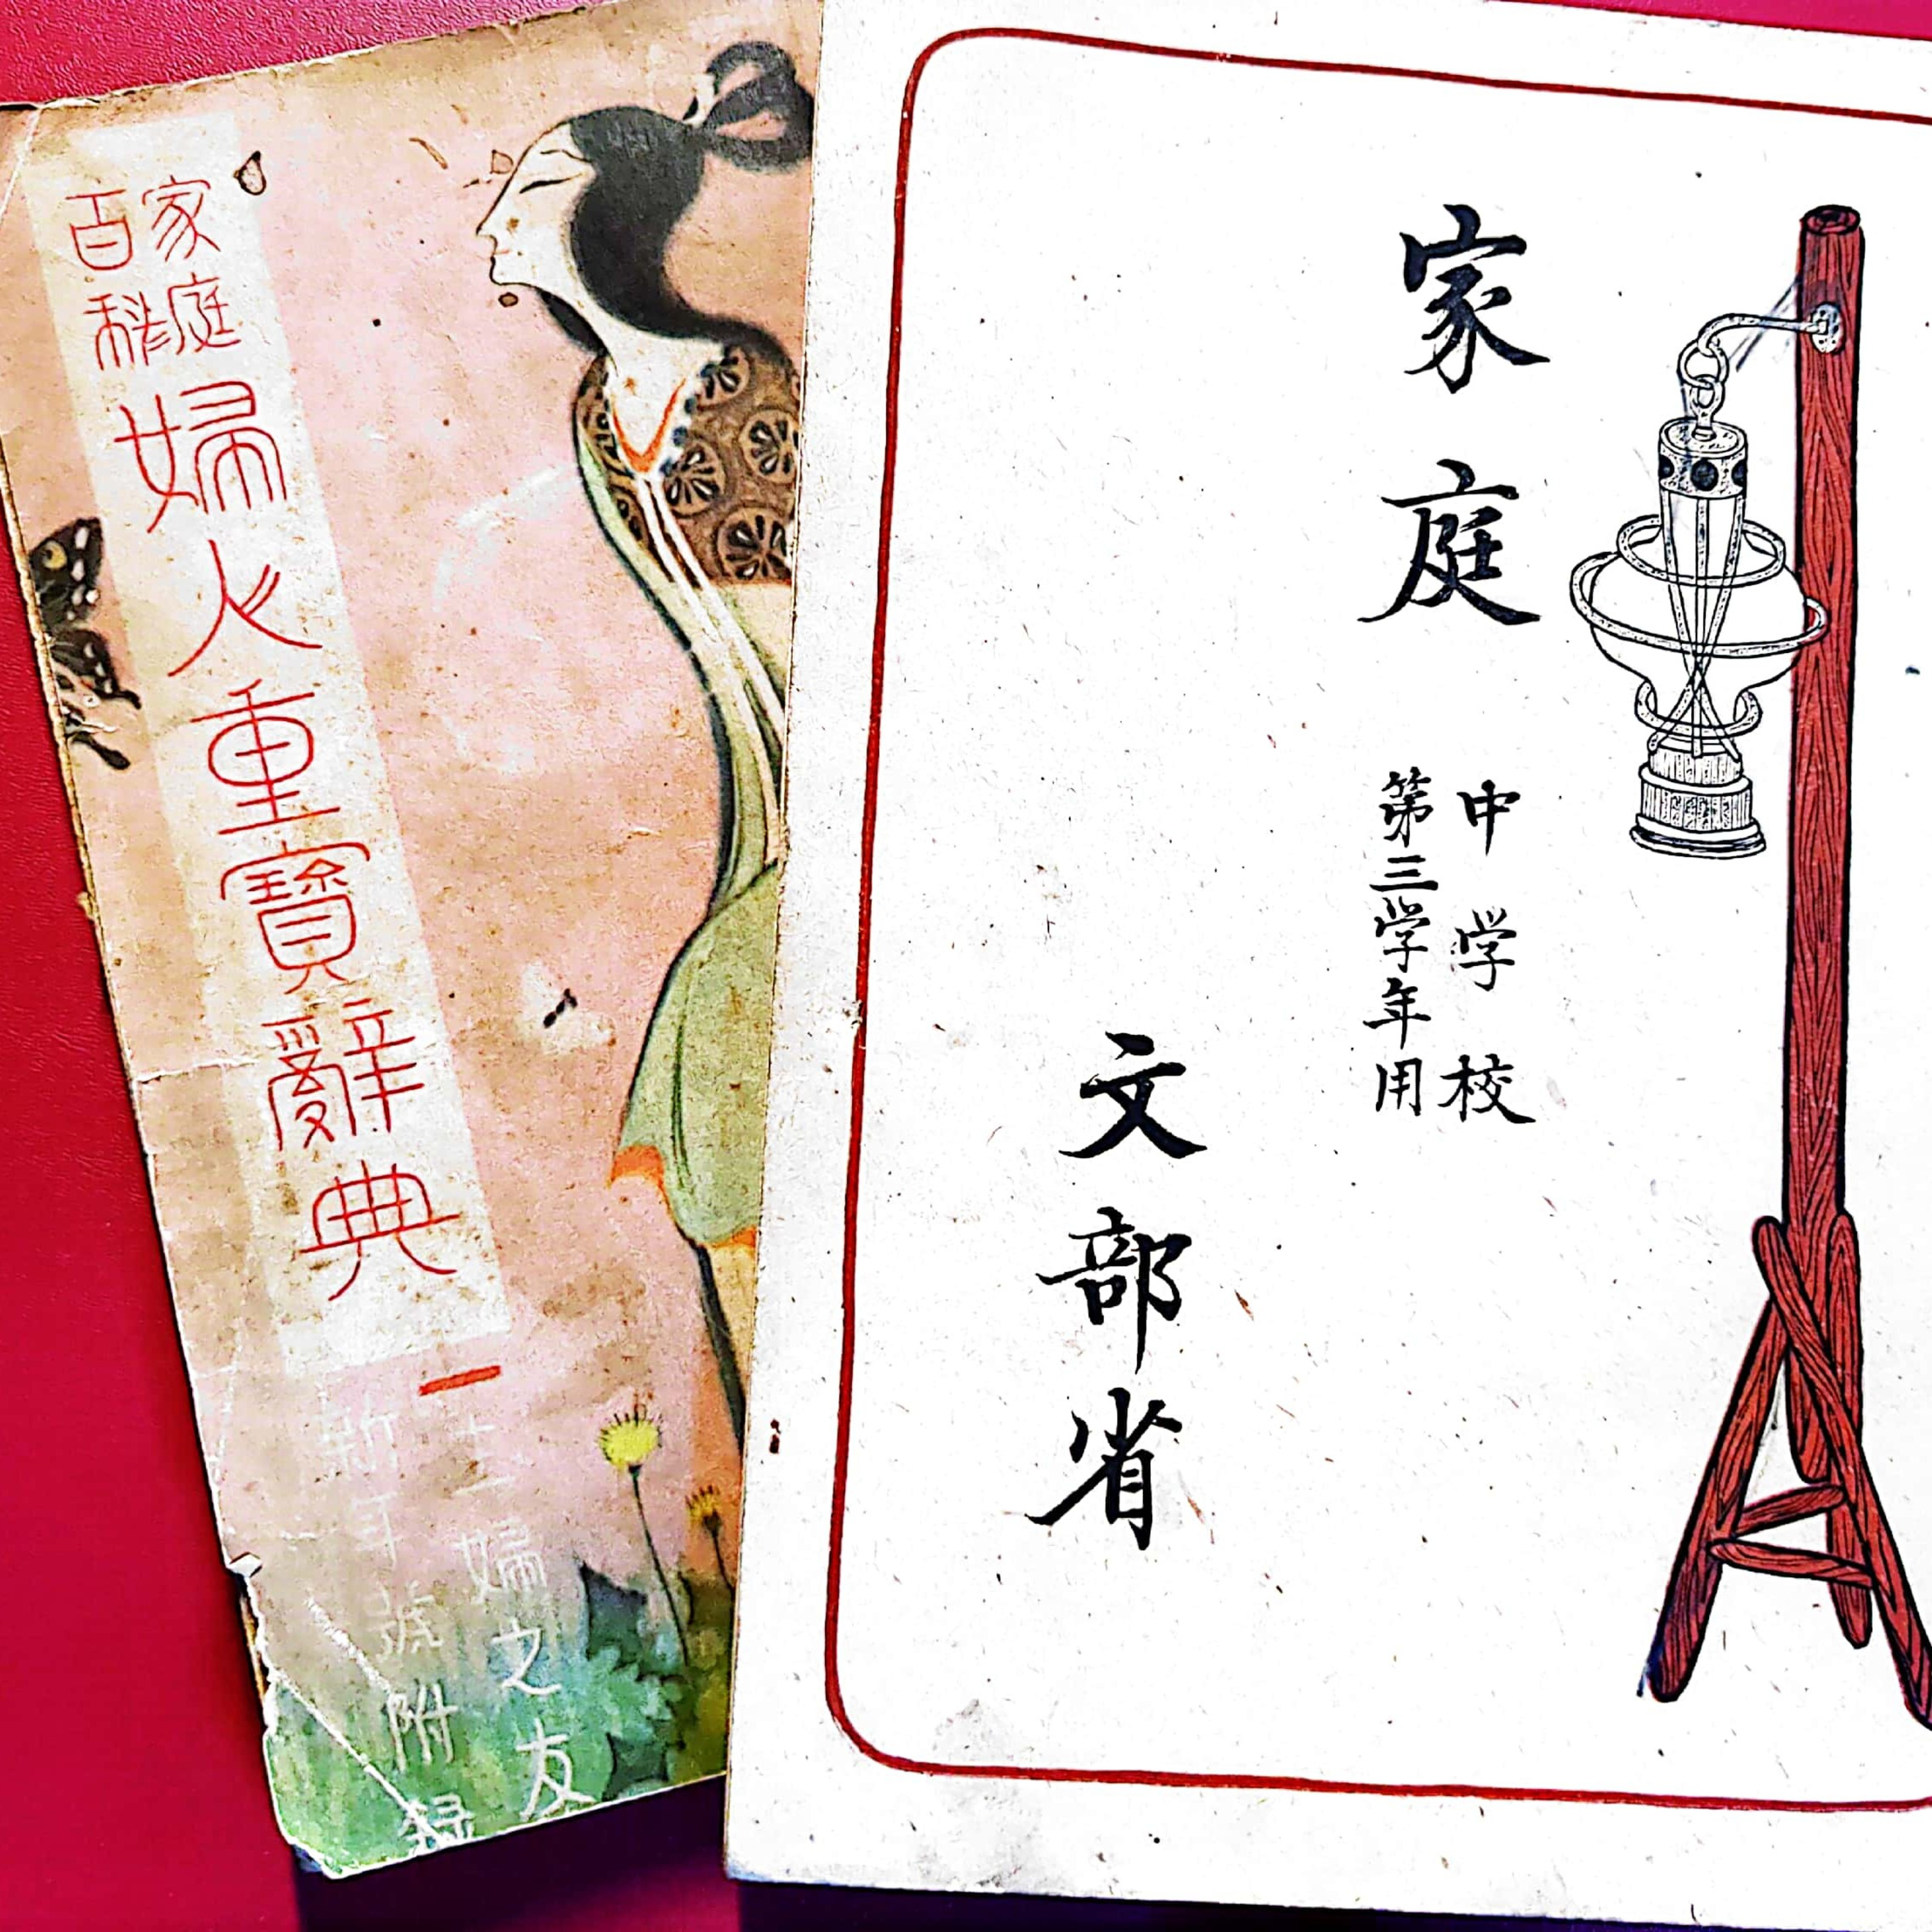 家庭
百科
婦人重寶辭典
主婦之友
新年號附錄
家庭
中学校
第三学年用
文部省